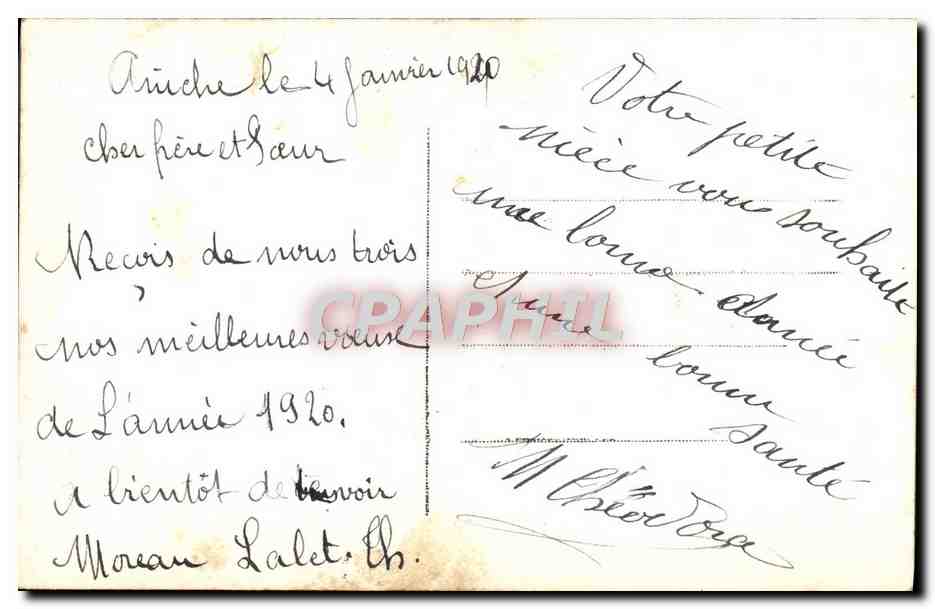 Aniche le 4 Janvier 1920
cher frère et Sœur
Reçois de nous trois
nos meilleures vœux
de L'année 1920.
a bientôt de voir
Moreau Lalet. Th.
Votre petite
nièce vous souhaite
une bonne année
et une bonne
santé
M Théodora
CPAPHIL